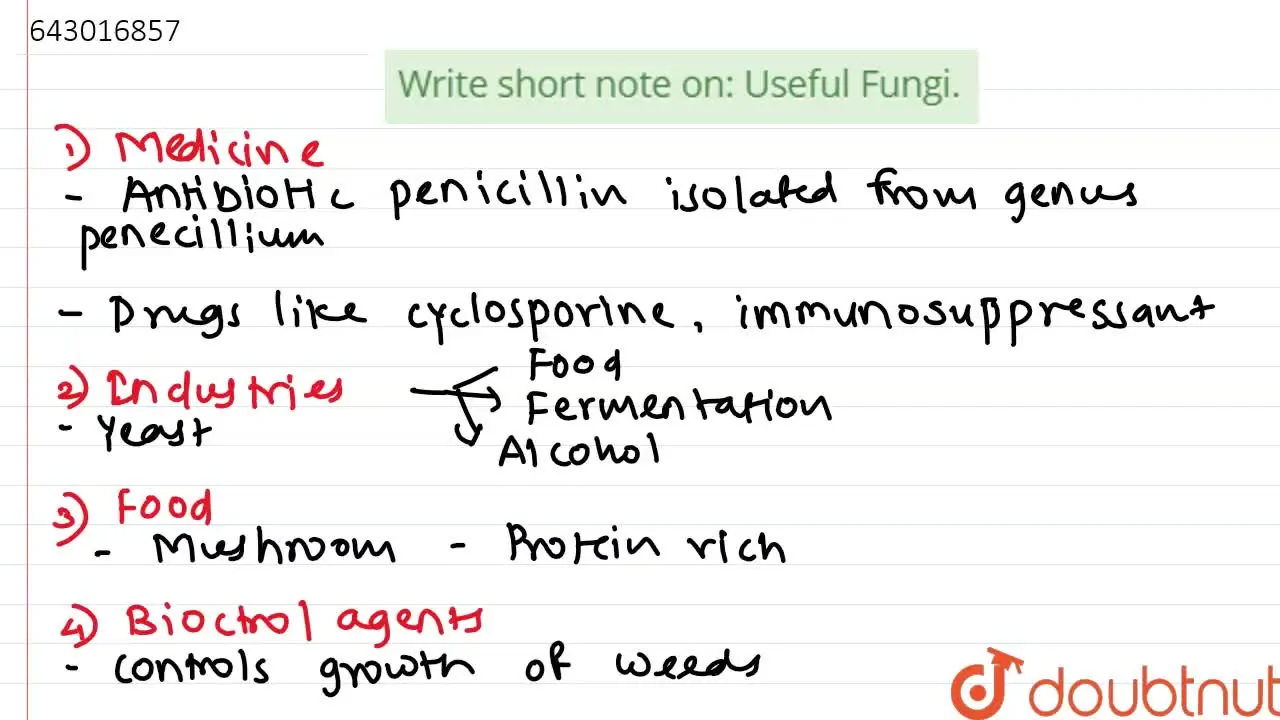 643016857
Write short note on: Useful Fungi.
1) Medicine
- Antibiotic penicillin isolated from genus
penecillium
- Drugs like cyclosporine, immunosuppressant
Food
2) Industries
Fermentation
- Yeast
Alcohol
3) Food
- Mushroom - Protein rich
4) Bioctrol agents
- Controls growth of weeds
doubtnut